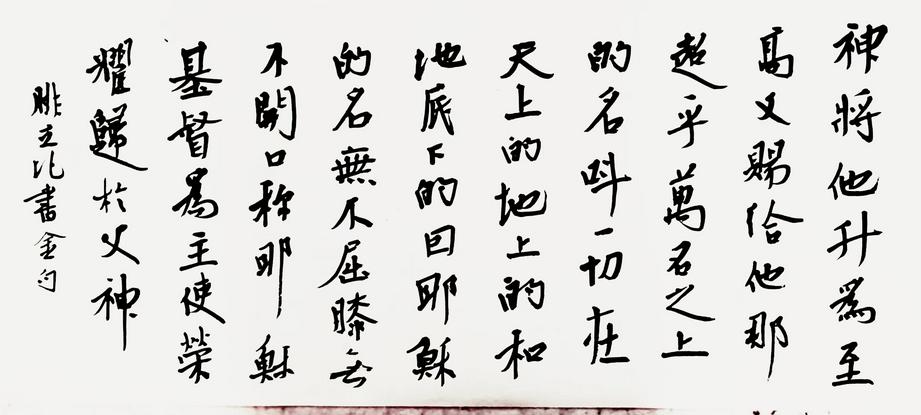 神將他升爲至
高又賜給他那
超乎萬名之上
的名呌一切在
天上的地上的和
地底下的因耶穌
的名無不屈膝無
不開口稱耶穌
基督爲主使榮
耀歸於父神
腓立比書金句